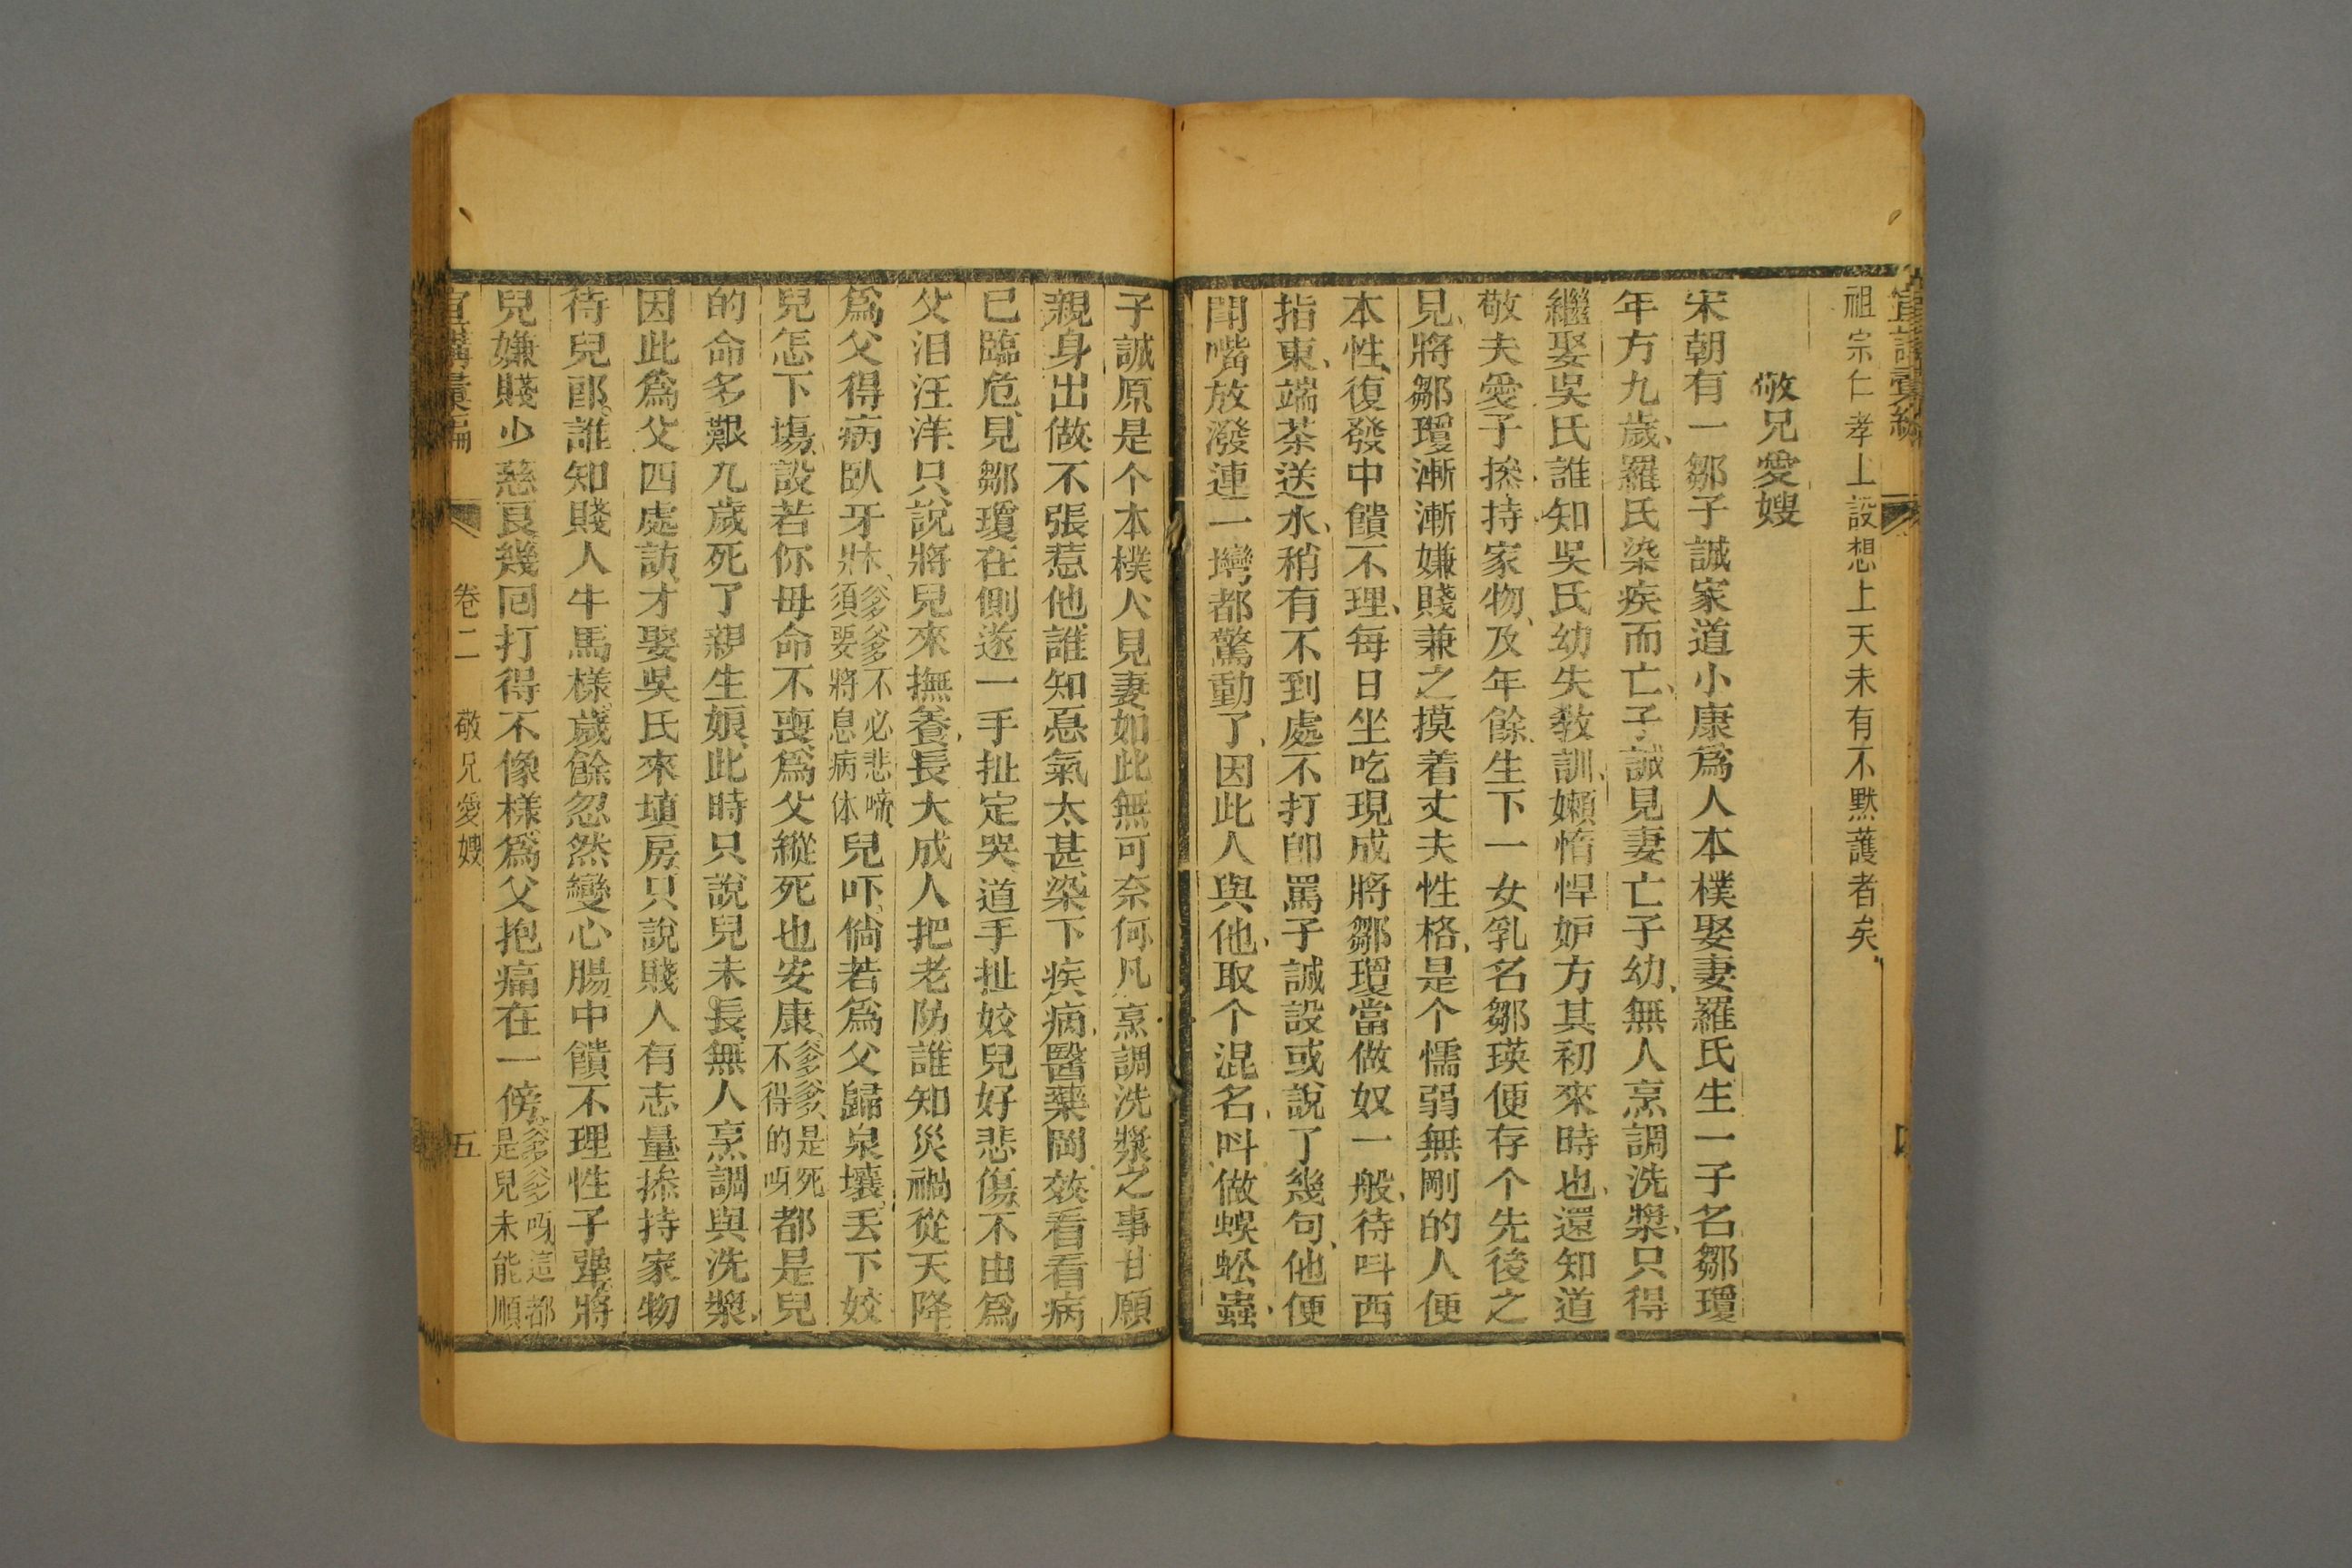 宣講彙編
祖宗仁孝上設想上天未有不默護者矣
敬兄愛嫂
宋朝有一鄒子誠家道小康爲人本樸娶妻羅氏生一子名鄒瓊
年方九歲羅氏染疾而亡子誠見妻亡子幼無人烹調洗漿只得
繼娶吳氏誰知吳氏幼失教訓嬾惰悍妒方其初來時也還知道
敬夫愛子㨫持家物及年餘生下一女乳名鄒瑛便存个先後之
見將鄒瓊漸漸嫌賤兼之摸着丈夫性格是个懦弱無剛的人便
本性復發中饋不理每日坐吃現成將鄒瓊當做奴一般待呌西
指東端茶送水稍有不到處不打卽罵子誠設或說了幾句他便
閈嘴放潑連一塆都驚動了因此人與他取个混名呌做蜈蚣蟲
子誠原是个本樸人見妻如此無可奈何凡烹調洗漿之事甘願
親身出做不張惹他誰知慪氣太甚染下疾病醫藥罔效看看病
已臨危見鄒瓊在側遂一手扯定哭道手扯姣兒好悲傷不由爲
父泪汪洋只說將兒來撫養長大成人把老防誰知災禍從天降
爲父得病臥牙牀爹爹不必悲啼須要將息病体兒吓倘若爲父歸泉壤丢下姣
兒怎下塲設若你毋命不喪爲父縱死也安康爹爹是死不得的呀都是兒
的命多艱九歲死了親生娘此時只說兒未長無人烹調與洗漿
因此爲父四處訪才娶吳氏來塡房只說賤人有志量㨫持家物
待兒郎誰知賤人牛馬樣歲餘忽然變心腸中饋不理性子犟將
兒嫌賤少慈良幾回打得不像樣爲父抱痛在一傍爹爹呀這都是兒未能順
宣講彙編 卷二 敬兄愛嫂 五